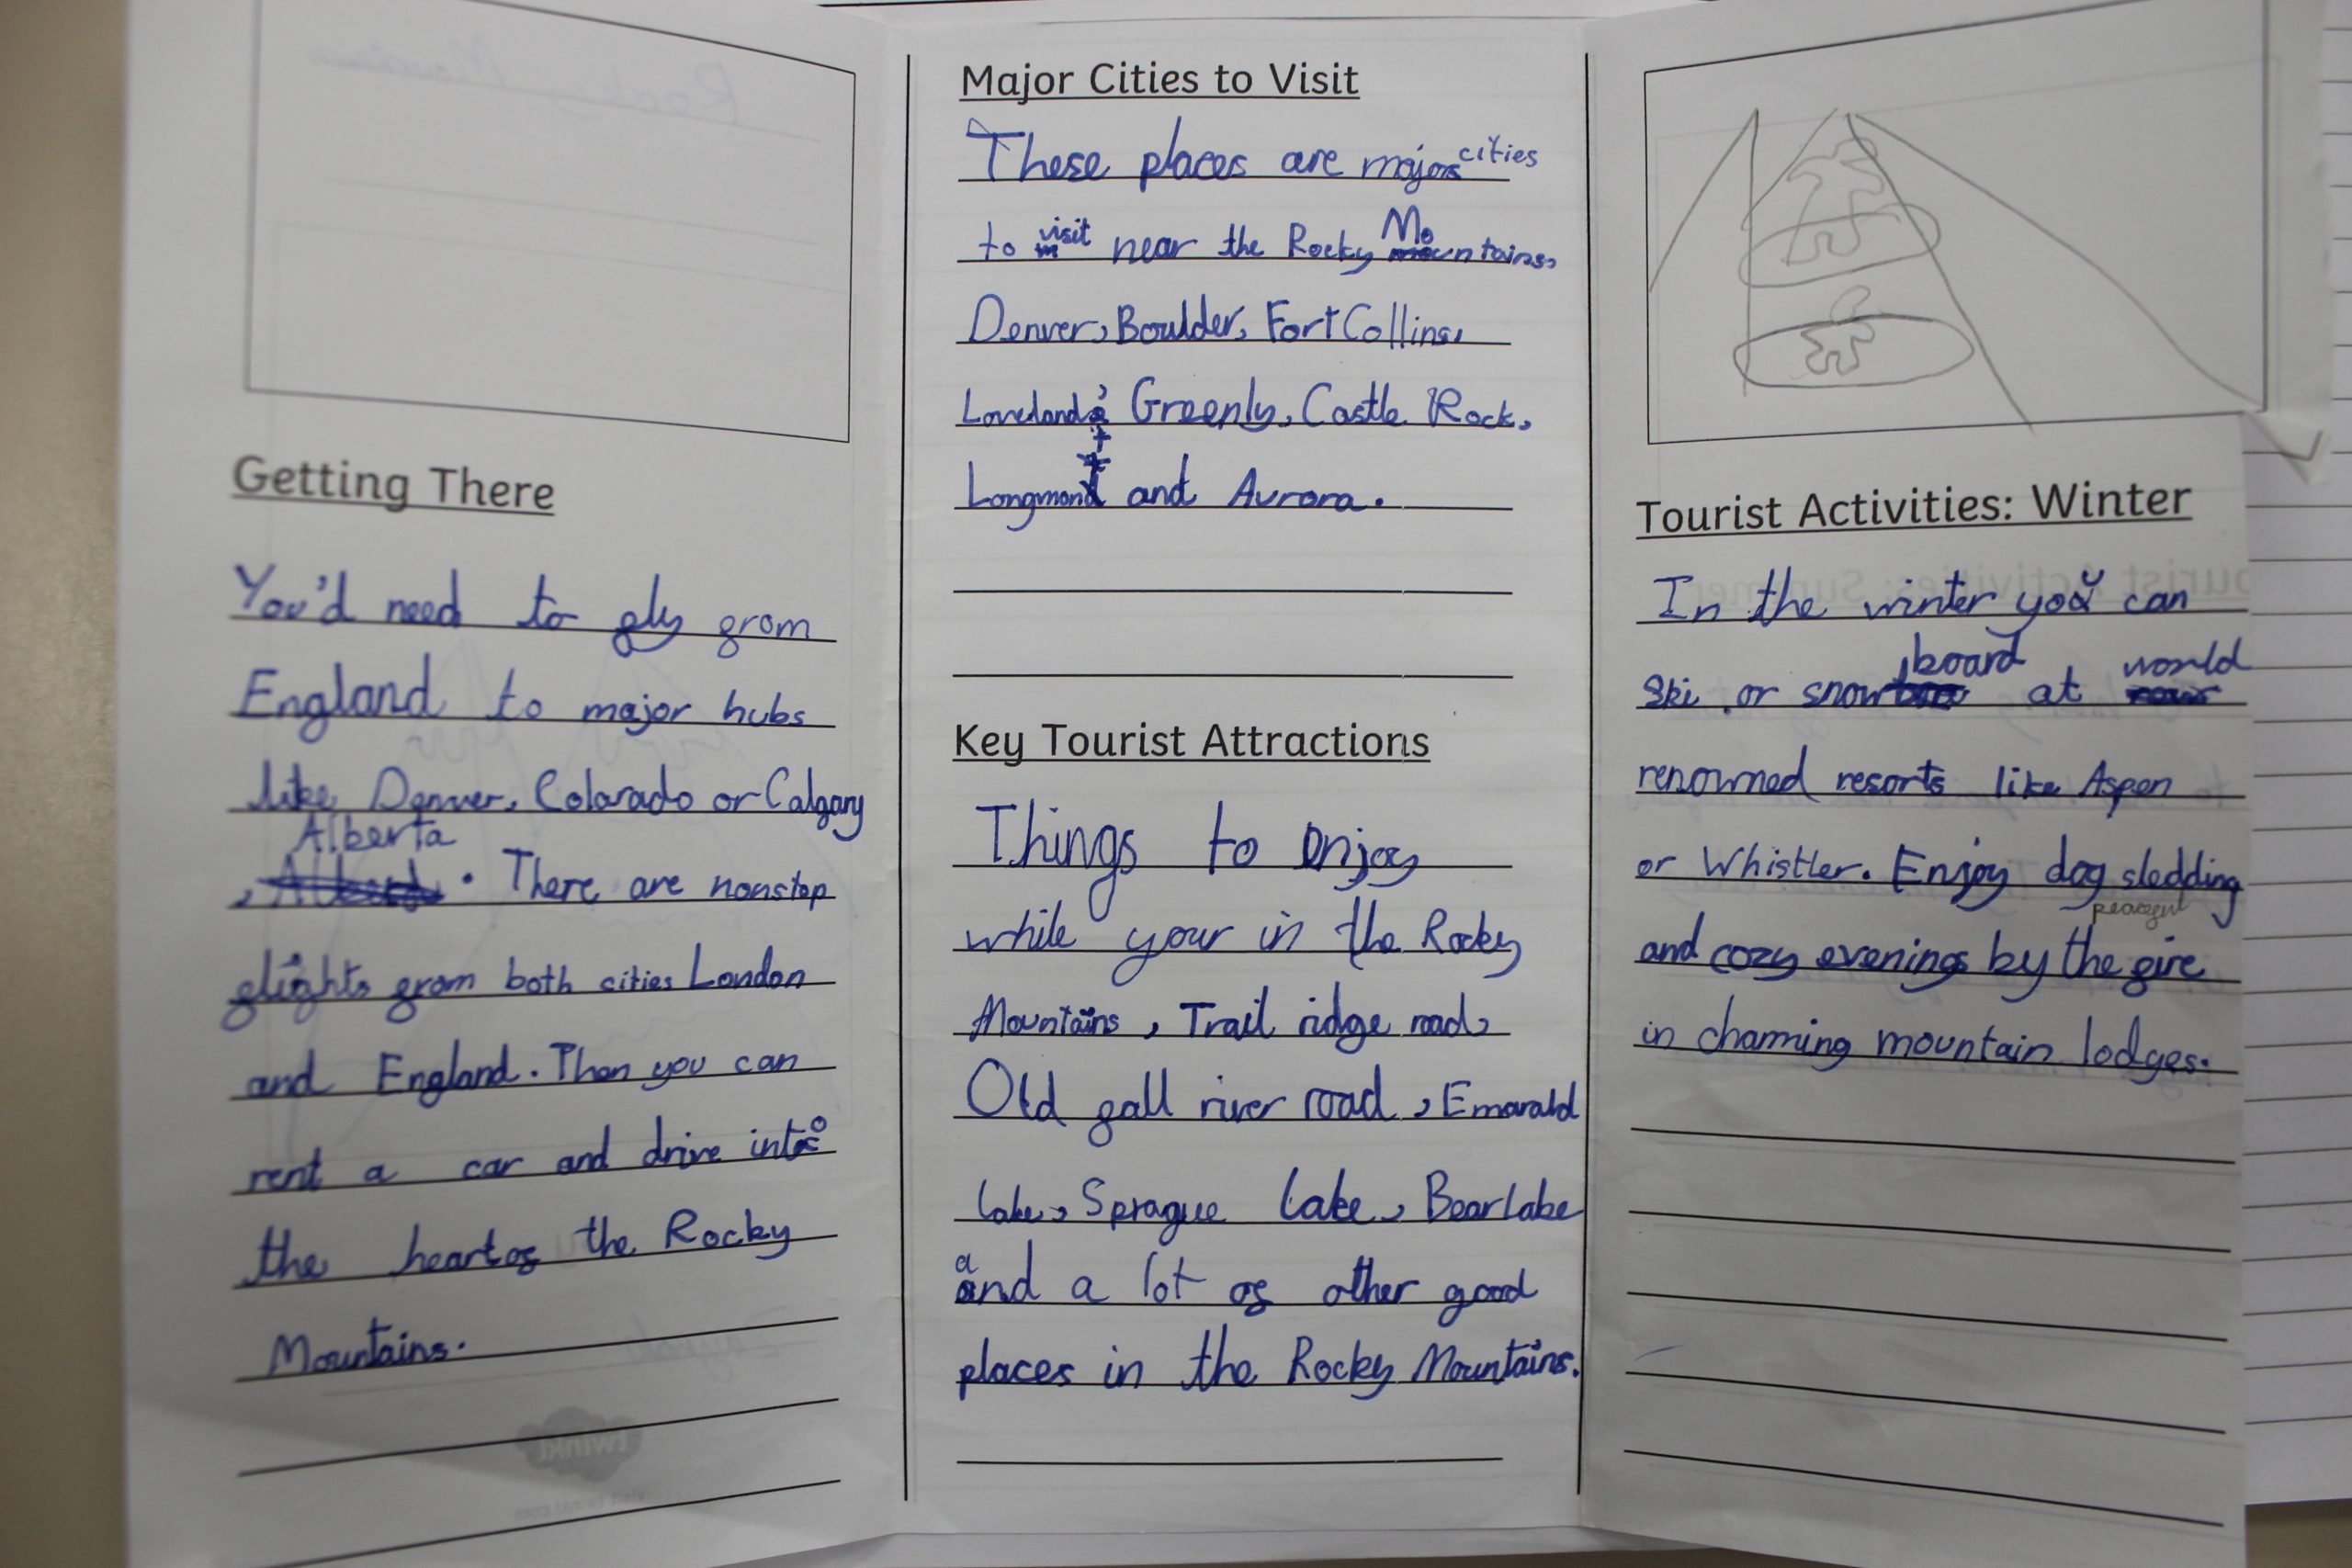 Getting There
You'd need to fly from
England to major hubs
like Denver, Colorado or Calgary
, Alberta. There are nonstop
flights from both cities London
and England. Then you can
rent a car and drive into
the heart of the Rocky
Mountains.
Major Cities to Visit
These places are major cities
to visit near the Rocky Mountains,
Denver, Boulder, Fort Collins,
Loveland, Greenly, Castle Rock,
Longmont and Aurora.
Key Tourist Attractions
Things to enjoy
while your in the Rocky
Mountains, Trail ridge road,
Old fall river road, Emarald
lake, Sprague lake, Bear lake
and a lot of other good
places in the Rocky Mountains.
Tourist Activities: Winter
In the winter you can
Ski or snowboard at world
renowned resorts like Aspen
or Whistler. Enjoy dog sledding
peaceful
and cozy evenings by the fire
in charming mountain lodges.